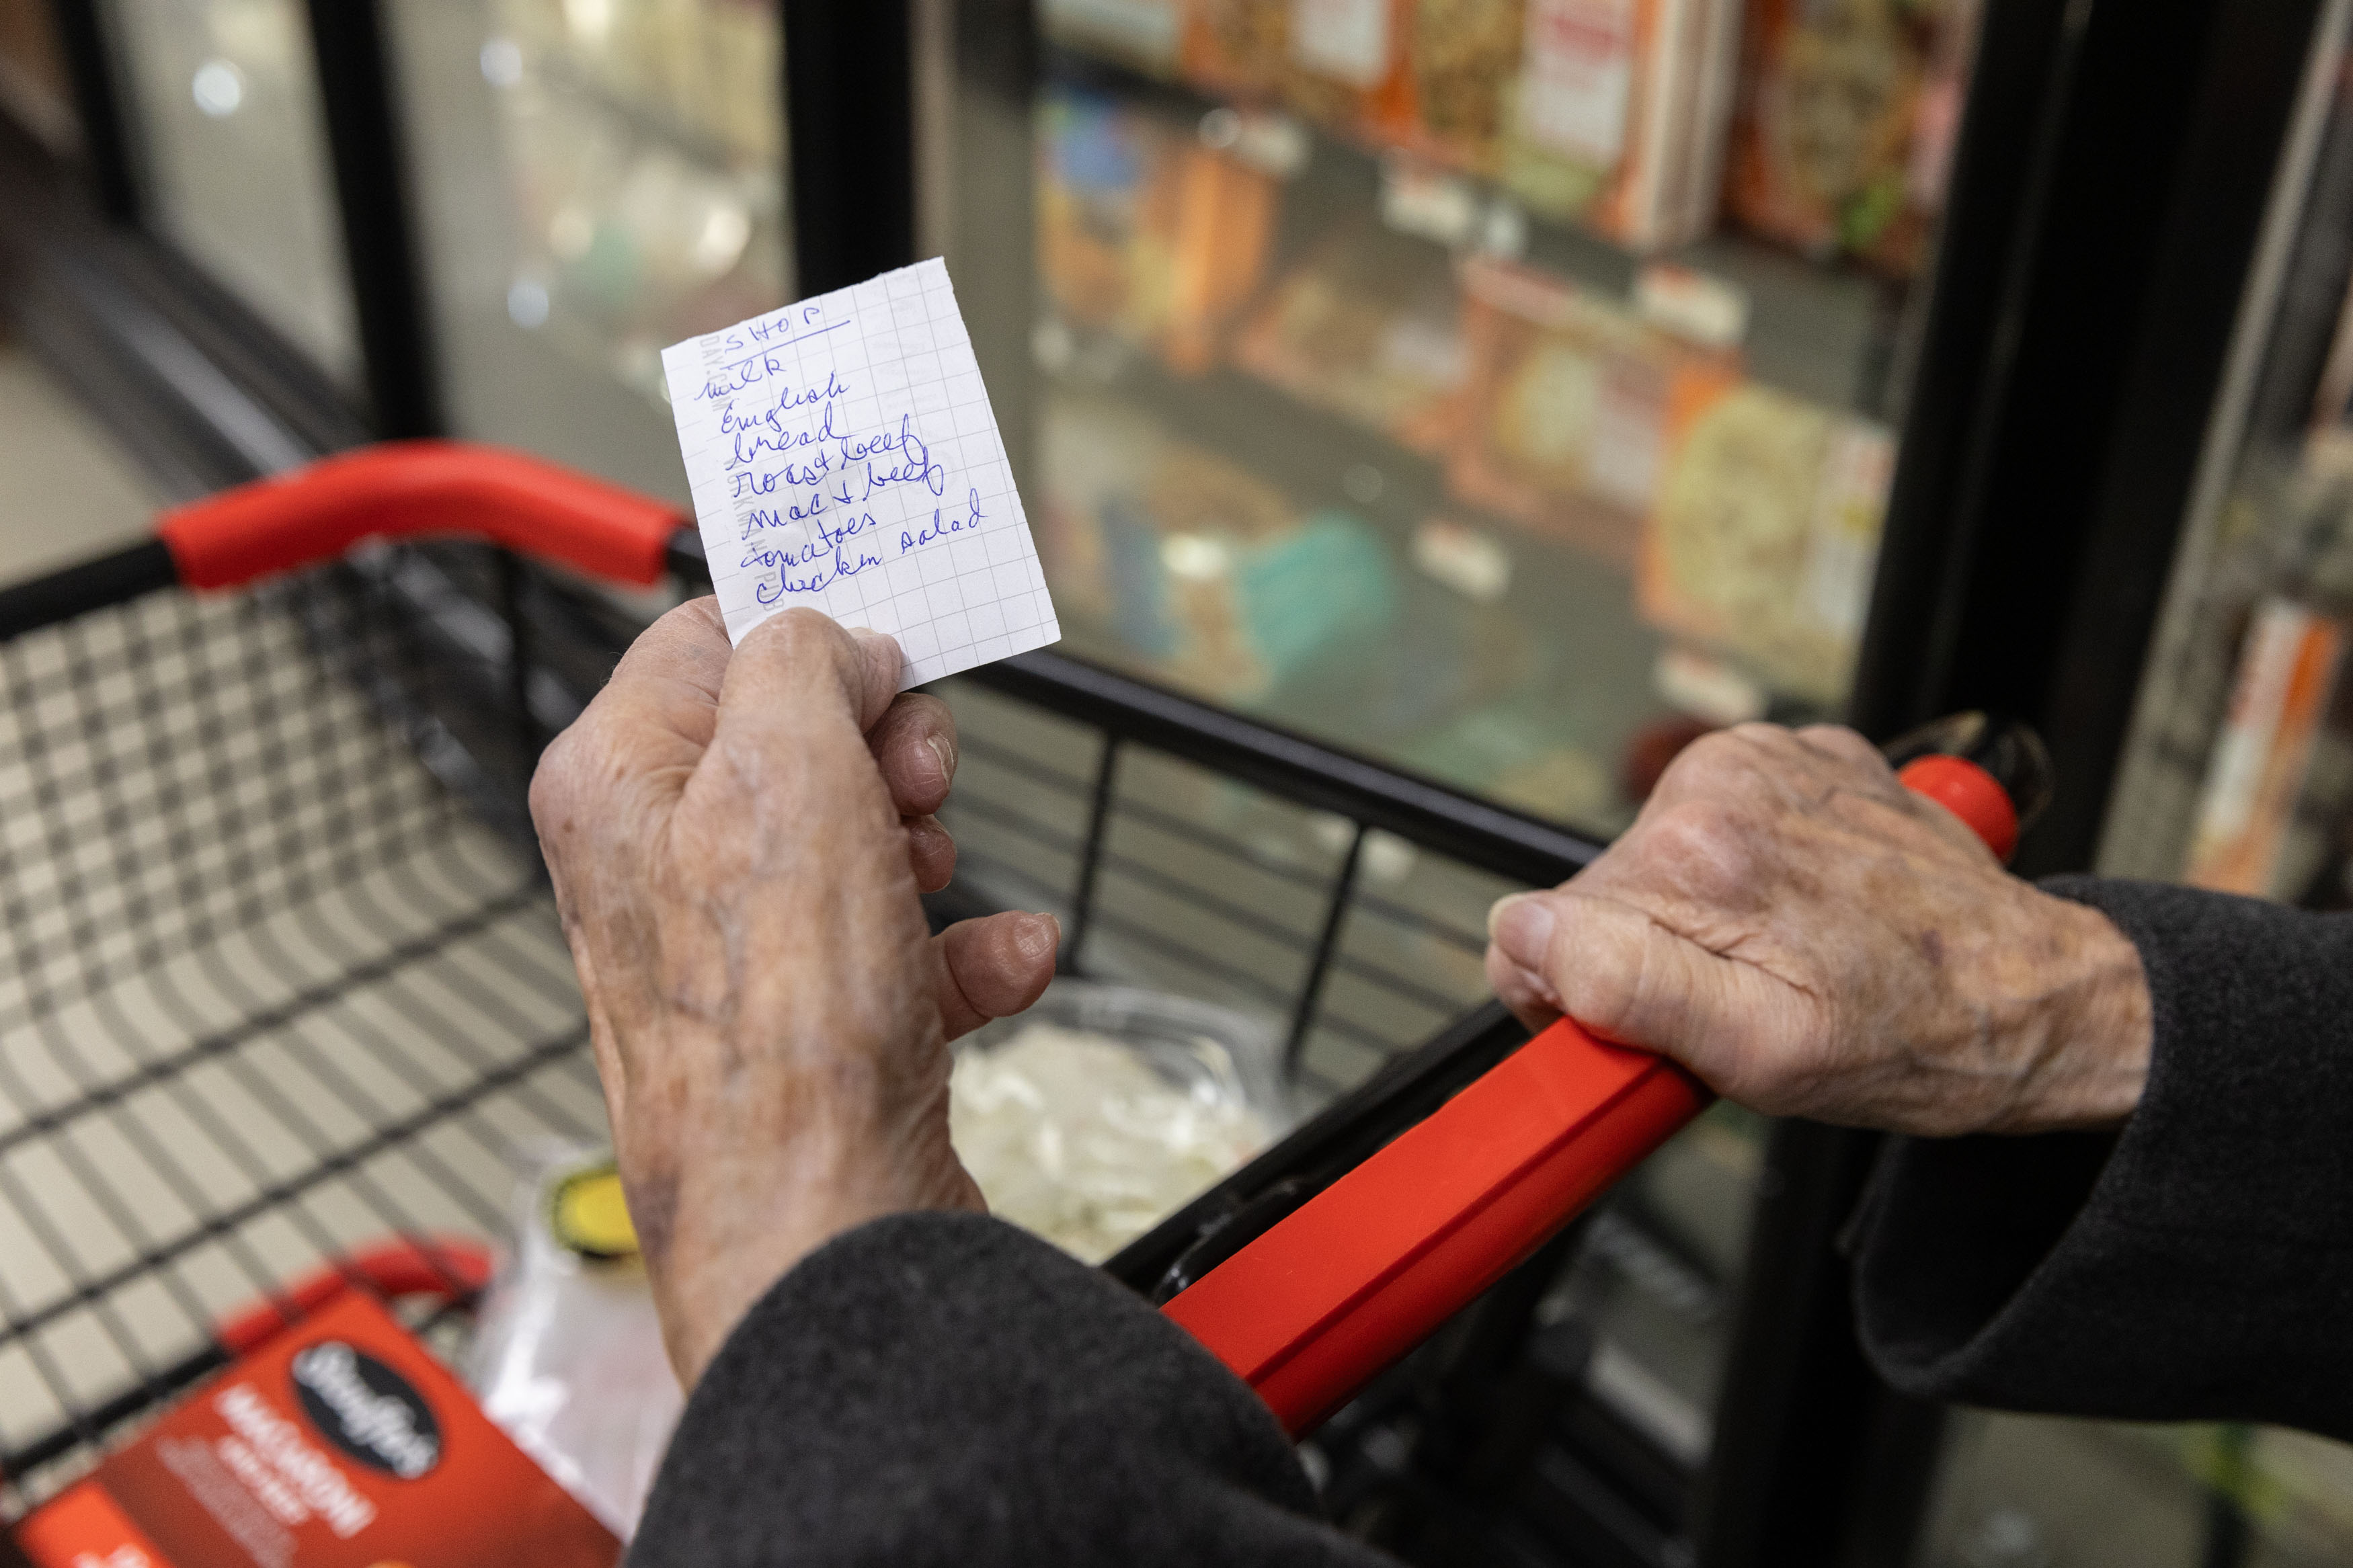 SHOP
milk
English
bread
roast beef
mac + beef
tomatoes
chicken salad
Stouffer's
MACARONI